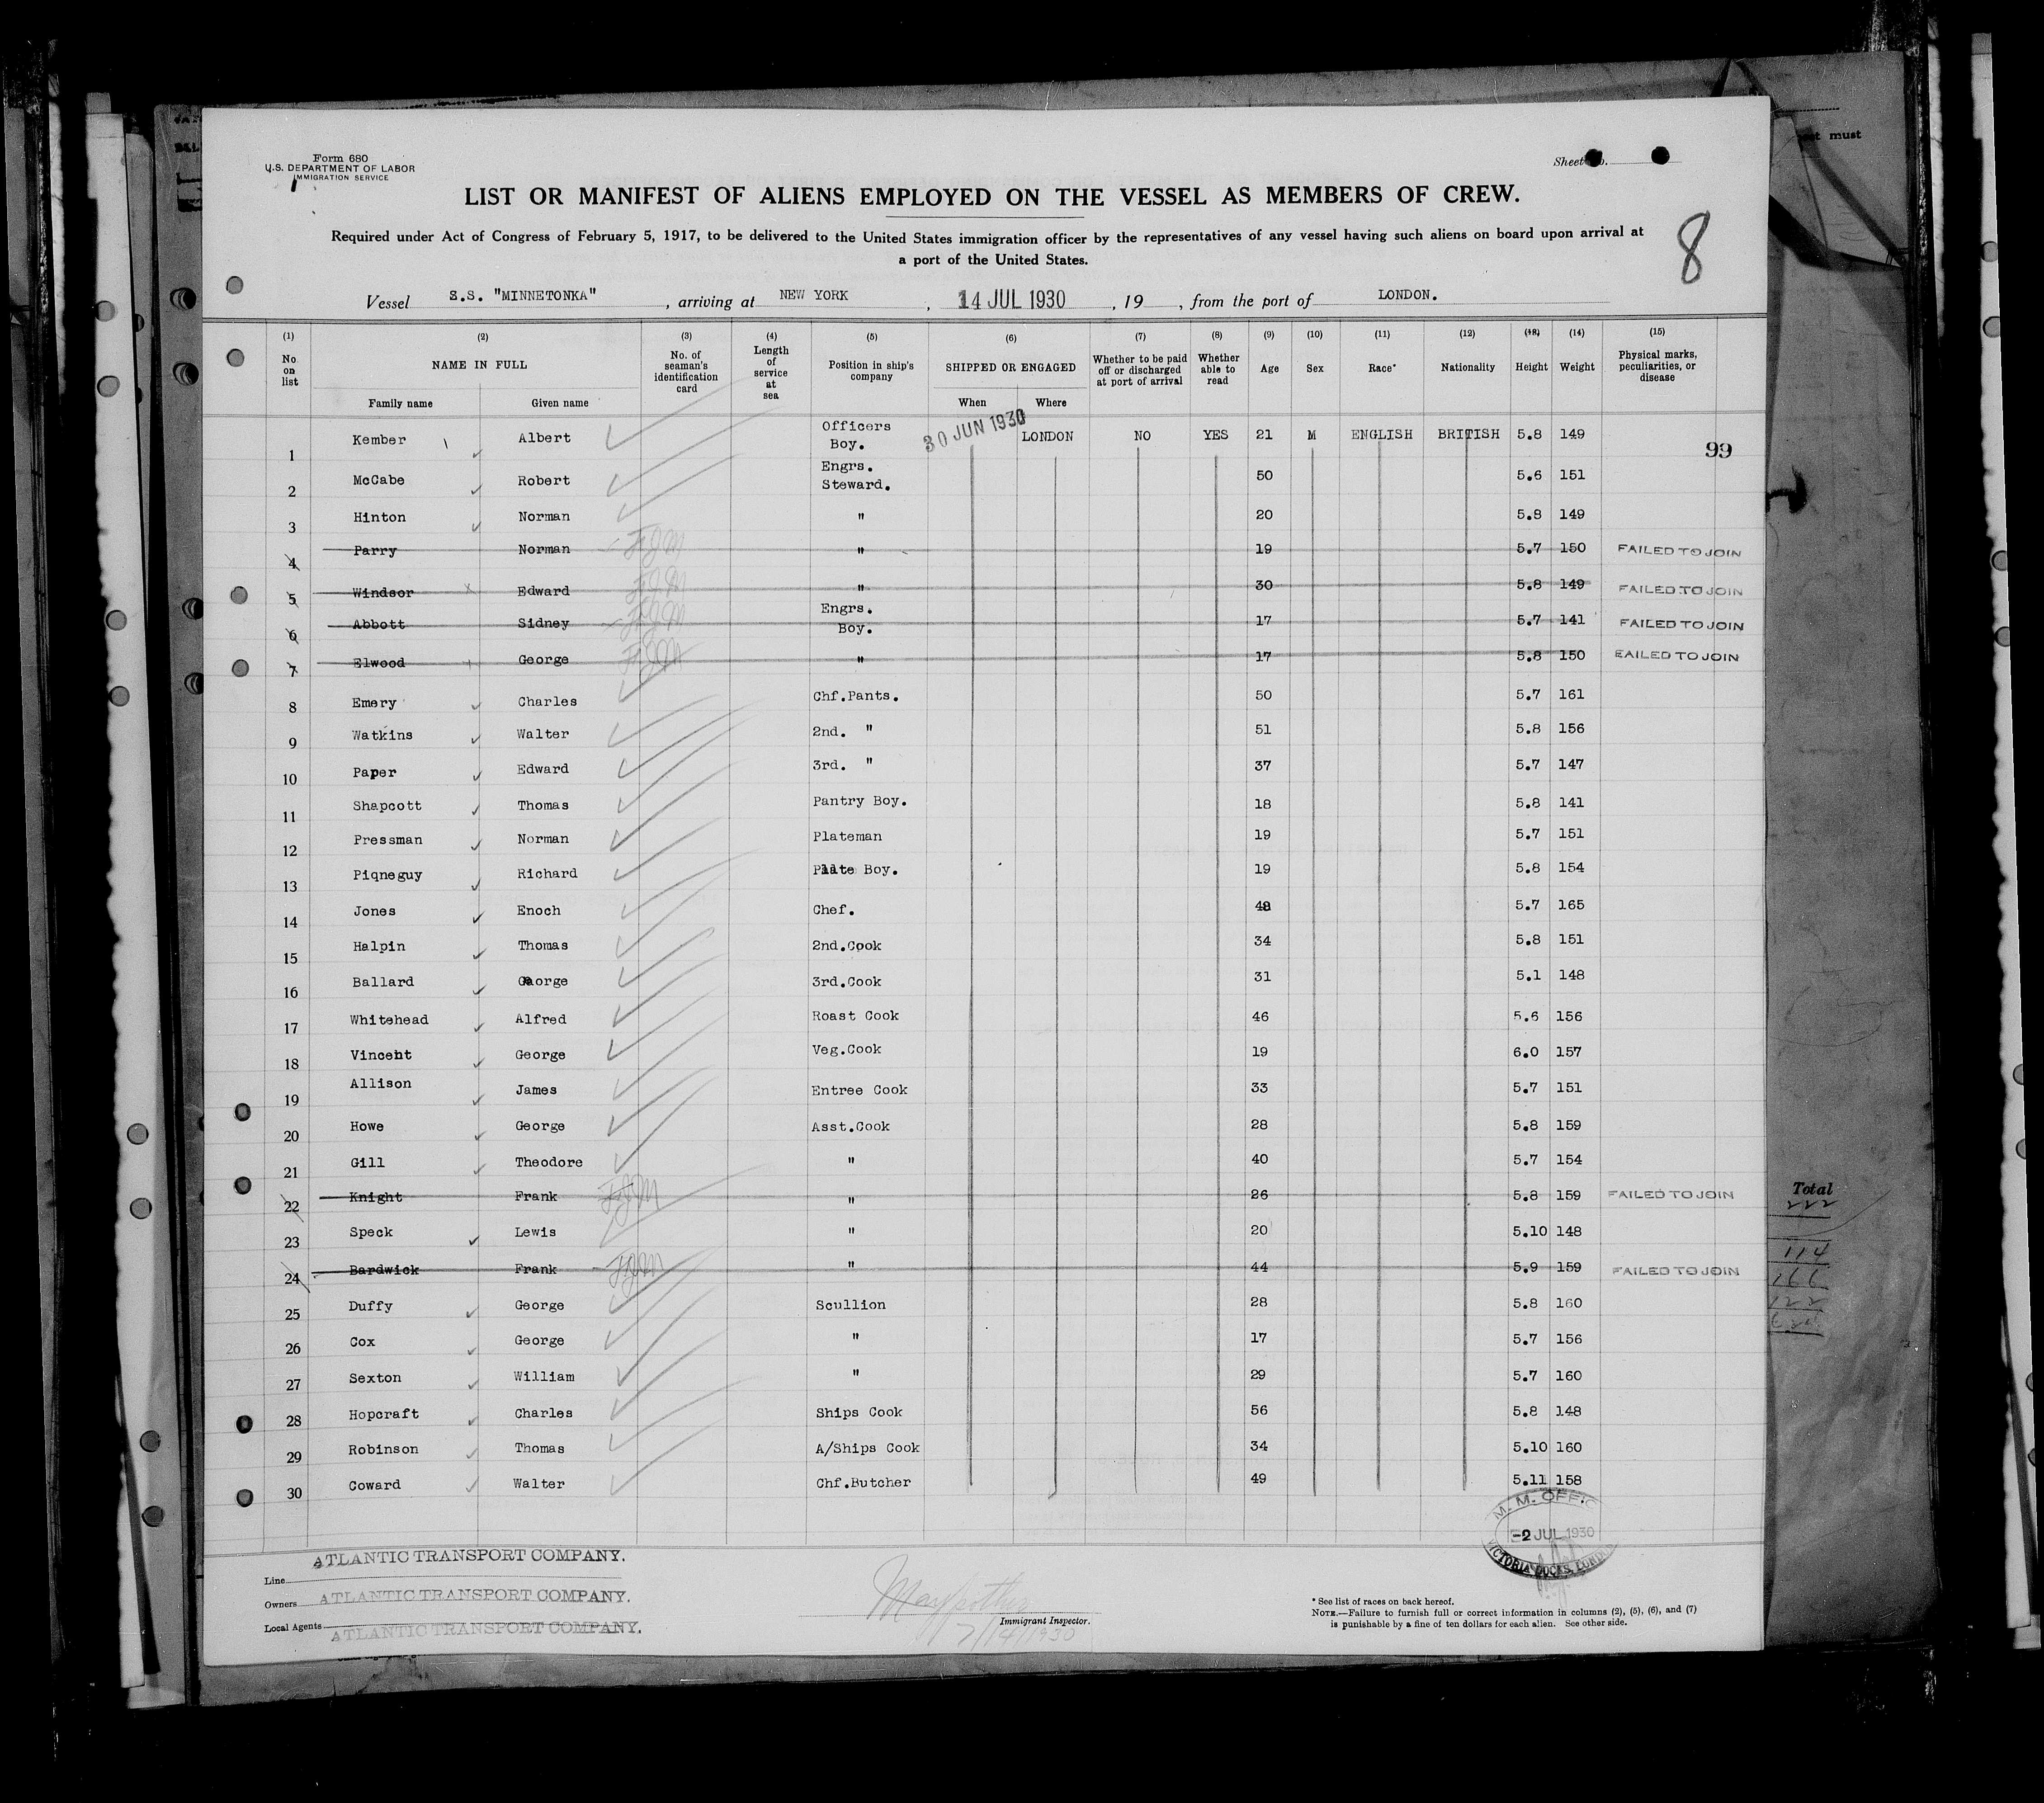 Form 680
U.S. DEPARTMENT OF LABOR
IMMIGRATION SERVICE
Sheet No.
LIST OR MANIFEST OF ALIENS EMPLOYED ON THE VESSEL AS MEMBERS OF CREW.
Required under Act of Congress of February 5, 1917, to be delivered to the United States immigration officer by the representatives of any vessel having such aliens on board upon arrival at
a port of the United States.
8
Vessel S.S. "MINNETONKA", arriving at NEW YORK, 14 JUL 1930, 19, from the port of LONDON.
(1) (2) (3) (4) (5) (6) (7) (8) (9) (10) (11) (12) (13) (14) (15)
No. on list NAME IN FULL Family name Given name No. of seaman's identification card Length of service at sea Position in ship's company SHIPPED OR ENGAGED When Where Whether to be paid off or discharged at port of arrival Whether able to read Age Sex Race* Nationality Height Weight Physical marks, peculiarities, or disease
1 Kember Albert Officers Boy. 30 JUN 1930 LONDON NO YES 21 M ENGLISH BRITISH 5.8 149
99
2 McCabe Robert Engrs. Steward. 50 5.6 151
3 Hinton Norman " 20 5.8 149
4 Parry Norman FJM " 19 5.7 150 FAILED TO JOIN
5 Windsor Edward FJM " 30 5.8 149 FAILED TO JOIN
6 Abbott Sidney FJM Engrs. Boy. 17 5.7 141 FAILED TO JOIN
7 Elwood George FJM " 17 5.8 150 FAILED TO JOIN
8 Emery Charles Chf.Pants. 50 5.7 161
9 Watkins Walter 2nd. " 51 5.8 156
10 Paper Edward 3rd. " 37 5.7 147
11 Shapcott Thomas Pantry Boy. 18 5.8 141
12 Pressman Norman Plateman 19 5.7 151
13 Piqneguy Richard Plate Boy. 19 5.8 154
14 Jones Enoch Chef. 48 5.7 165
15 Halpin Thomas 2nd.Cook 34 5.8 151
16 Ballard George 3rd.Cook 31 5.1 148
17 Whitehead Alfred Roast Cook 46 5.6 156
18 Vincent George Veg.Cook 19 6.0 157
19 Allison James Entree Cook 33 5.7 151
20 Howe George Asst.Cook 28 5.8 159
21 Gill Theodore " 40 5.7 154
22 Knight Frank FJM " 26 5.8 159 FAILED TO JOIN
23 Speck Lewis " 20 5.10 148
24 Bardwick Frank FJM " 44 5.9 159 FAILED TO JOIN
25 Duffy George Scullion 28 5.8 160
26 Cox George " 17 5.7 156
27 Sexton William " 29 5.7 160
28 Hopcraft Charles Ships Cook 56 5.8 148
29 Robinson Thomas A/Ships Cook 34 5.10 160
30 Coward Walter Chf.Butcher 49 5.11 158
M. M. OFFICE
-2 JUL 1930
VICTORIA DOCKS, LONDON
Line ATLANTIC TRANSPORT COMPANY.
Owners ATLANTIC TRANSPORT COMPANY.
Local Agents ATLANTIC TRANSPORT COMPANY.
Immigrant Inspector.
7/14/1930
* See list of races on back hereof.
NOTE.—Failure to furnish full or correct information in columns (2), (5), (6), and (7)
is punishable by a fine of ten dollars for each alien. See other side.
must
Total
222
114
166
122